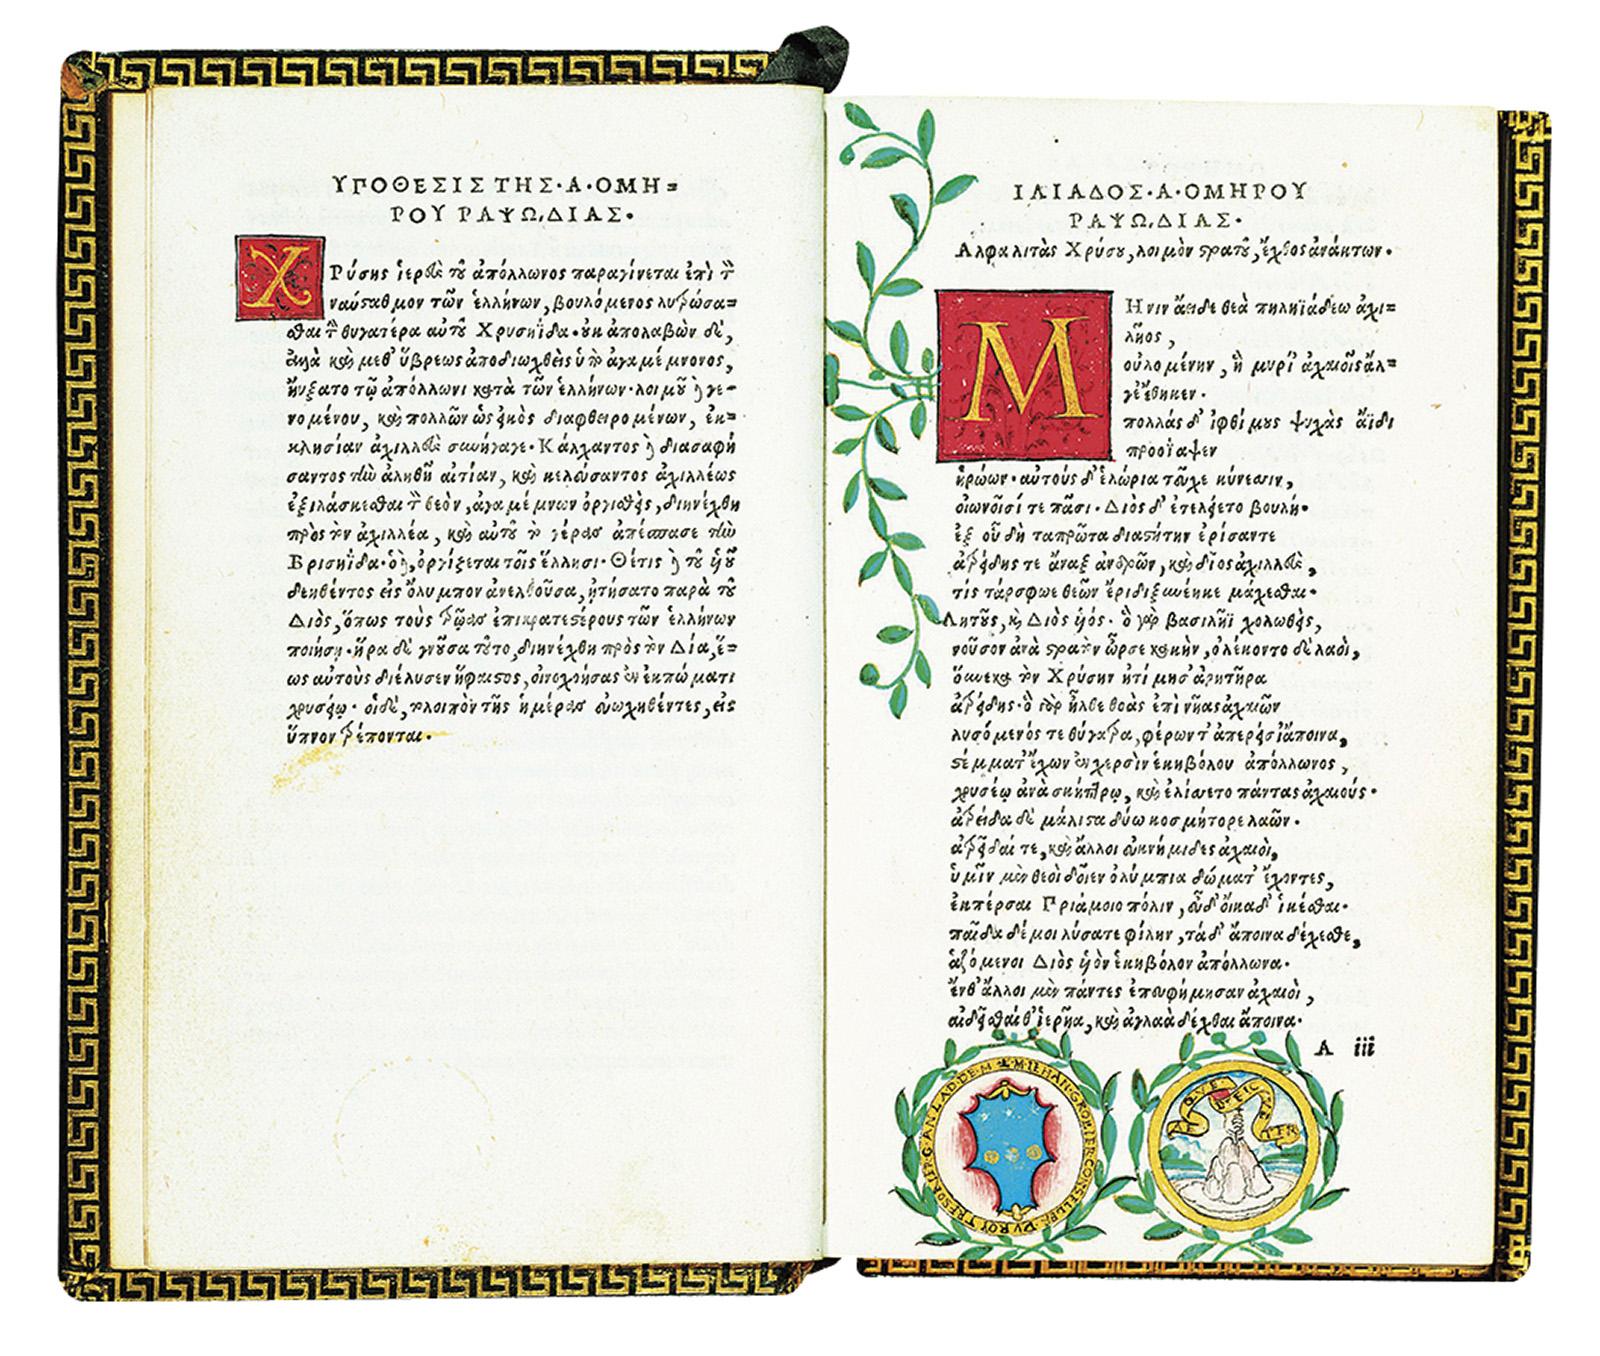 ΥΠΟΘΕΣΙΣ ΤΗΣ·Α·ΟΜΗ=
ΡΟΥ ΡΑΨΩΔΙΑΣ·
Χρύσης ἱερεὺς τοῦ ἀπόλλωνος παραγίνεται ἐπὶ τὸν
ναύσταθμον τῶν ἑλλήνων, βουλόμενος λυτρώσα=
σθαι τὴν θυγατέρα αὐτοῦ Χρυσηΐδα·οὐκ ἀπολαβὼν δὲ,
ἀλλὰ καὶ μεθ' ὕβρεως ἀποδιωχθεὶς ὑπὸ ἀγαμέμνονος,
ἤυξατο τῷ ἀπόλλωνι κατὰ τῶν ἑλλήνων·λοιμοῦ δὲ γε-
νομένου, καὶ πολλῶν ὡς εἰκὸς διαφθειρομένων, ἐκ=
κλησίαν ἀχιλλεὺς συνήγαγε·Κάλχαντος δὲ διασαφή
σαντος τὴν ἀληθῆ αἰτίαν, καὶ κελεύσαντος ἀχιλλέως
ἐξιλάσκεσθαι τὸν θεὸν, ἀγαμέμνων ὀργισθεὶς, διηνέχθη
πρὸς τὸν ἀχιλλέα, καὶ αὐτοῦ τὸ γέρας ἀπέσπασε τὴν
Βρισηΐδα·ὁ δὲ, ὀργίζεται τοῖς ἕλλησι·Θέτις δὲ τοῦ υἱοῦ
δεηθέντος εἰς ὄλυμπον ἀνελθοῦσα, ᾐτήσατο παρὰ τοῦ
Διὸς, ὅπως τοὺς Τρῶας ἐπικρατεστέρους τῶν ἑλλήνων
ποιήσῃ·ἥρα δὲ γνοῦσα τοῦτο, διηνέχθη πρὸς τὸν Δία, ἕ=
ως αὐτοὺς διέλυσεν ἥφαιστος, οἰνοχοήσας ἐν ἐκπώματι
χρυσέῳ· οἱ δὲ, τὸ λοιπὸν τῆς ἡμέρας εὐωχηθέντες, εἰς
ὕπνον τρέπονται·
ΙΛΙΑΔΟΣ·Α·ΟΜΗΡΟΥ
ΡΑΨΩΔΙΑΣ·
Αλφα λιτὰς Χρύσου, λοιμὸν στρατοῦ, ἔχθος ἀνάκτων·
ΜΗνιν ἄειδε θεὰ πηληϊάδεω ἀχι=
λῆος,
οὐλομένην, ἣ μυρί' ἀχαιοῖς ἄλ=
γε' ἔθηκεν·
πολλὰς δ' ἰφθίμους ψυχὰς ἄϊδι
προΐαψεν
ἡρώων·αὐτοὺς δ' ἑλώρια τεῦχε κύνεσσιν,
οἰωνοῖσί τε πᾶσι·Διὸς δ' ἐτελείετο βουλή·
ἐξ οὗ δὴ ταπρῶτα διαστήτην ἐρίσαντε
ἀτρείδης τε ἄναξ ἀνδρῶν, καὶ δῖος ἀχιλλεὺς,
τίς τάρ σφωε θεῶν ἔριδι ξυνέηκε μάχεσθαι·
Λητοῦς, καὶ Διὸς υἱός· ὁ γὰρ βασιλῆϊ χολωθεὶς,
νοῦσον ἀνὰ στρατὸν ὦρσε κακὴν, ὀλέκοντο δὲ λαοὶ,
ὅυνεκα τὸν Χρύσην ἠτίμησ' ἀρητῆρα
ἀτρείδης·ὁ γὰρ ἦλθε θοὰς ἐπὶ νῆας ἀχαιῶν
λυσόμενός τε θύγατρα, φέρων τ' ἀπερείσι' ἄποινα,
στέμματ' ἔχων ἐν χερσὶν ἑκηβόλου ἀπόλλωνος,
χρυσέῳ ἀνὰ σκήπτρῳ, καὶ ἐλίσσετο πάντας ἀχαιούς·
ἀτρείδα δὲ μάλιστα δύω κοσμήτορε λαῶν·
ἀτρεῖδαί τε, καὶ ἄλλοι ἐυκνήμιδες ἀχαιοὶ,
ὑμῖν μὲν θεοὶ δοῖεν ὀλύμπια δώματ' ἔχοντες,
ἐκπέρσαι Πριάμοιο πόλιν, εὖ δ' οἴκαδ' ἱκέσθαι·
παῖδα δέ μοι λύσατε φίλην, τά δ' ἄποινα δέχεσθε,
ἁζόμενοι Διὸς υἱὸν ἑκηβόλον ἀπόλλωνα·
ἔνθ' ἄλλοι μὲν πάντες ἐπευφήμησαν ἀχαιοὶ,
αἰδεῖσθαί θ' ἱερῆα, καὶ ἀγλαὰ δέχθαι ἄποινα·
A iii
M·IEHAN·GROLIER·CONSELIER·DV·ROY TRESORIER·G·AN·LAD·DE·M
AEQVE DIFICVLTER